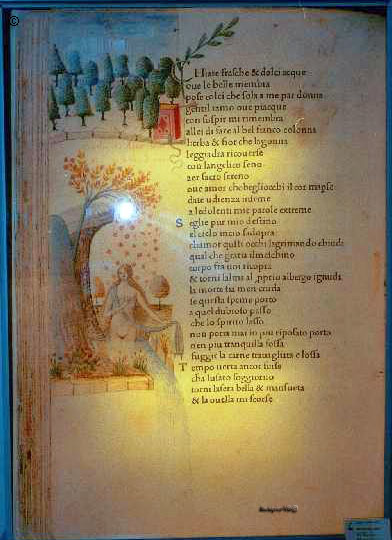 Hiare fresche & dolci acque
oue le belle membra
pose colei che sola a me par donna
gentil ramo oue piacque
con suspir mi rimembra
allei di fare al bel fianco colonna
herba & fior che lagonna
leggiadra ricouerse
con langelico seno
aer sacro sereno
oue amor chobegliocchi il cor maperse
date udienza insieme
a ledolenti mie parole extreme
S egli e pur mio destino
el cielo in cio sadopra
chamor questi occhi lagrimando chiuda
qual che gratia il meschino
corpo fra uoi ricopra
& torni lalma al ꝓprio albergo ignuda
la morte fia men cruda
se questa speme porto
a quel dubioso passo
che lo spirito lasso
non poria mai in piu riposato porto
nen piu tranquilla fossa
fuggir la carne trauagliata & lossa
T empo uerra ancor forse
cha lusato soggiorno
torni lafera bella & mansueta
& la ouella mi scorse